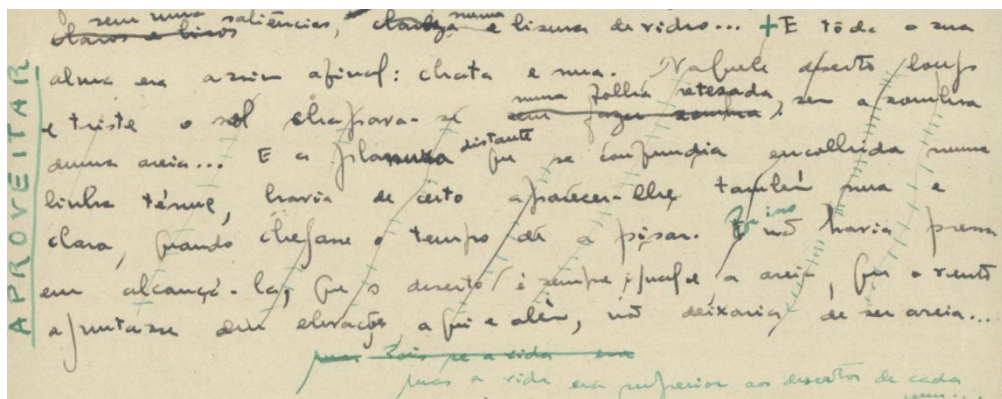 sem uma saliências, numa
claros e lisos clareza e lisura de vidro... + E tôda a sua
alma era assim afinal: chata e nua. Naquele deserto longo
numa folha retezada,
e triste o sol chapava-se sem fazer sombra, sem a sombra
duma areia... E a planura distante que se confundia encolhida numa
linha ténue, havia de certo aparecer-lhe também nua e
clara, quando chegasse o tempo de a pisar. Por isso não havia pressa
em alcançá-la, que o deserto é sempre igual e a areia, que o vento
ajuntasse em elevações, aqui e além, não deixaria de ser areia...
mas Pois se a vida era
mas a vida era superior aos desertos de cada
APROVEITAR